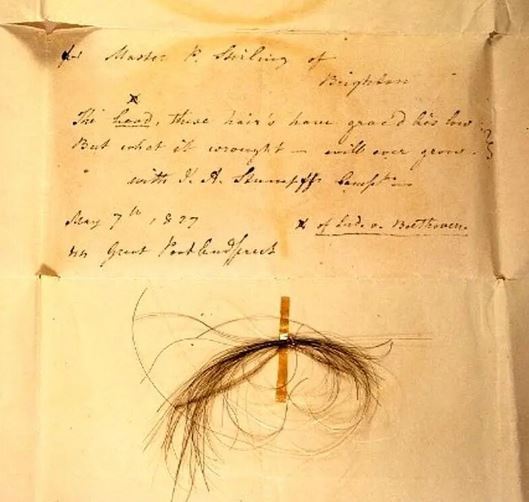 for Master P. Stirling of
Brighton
x
The head, these hair's have grac'd lies low
But what it wrought — will ever grow.
with J. A. Stumpff's Compts
May 7th, 1827
44 Great Portland Street
x of Lud. v. Beethoven.